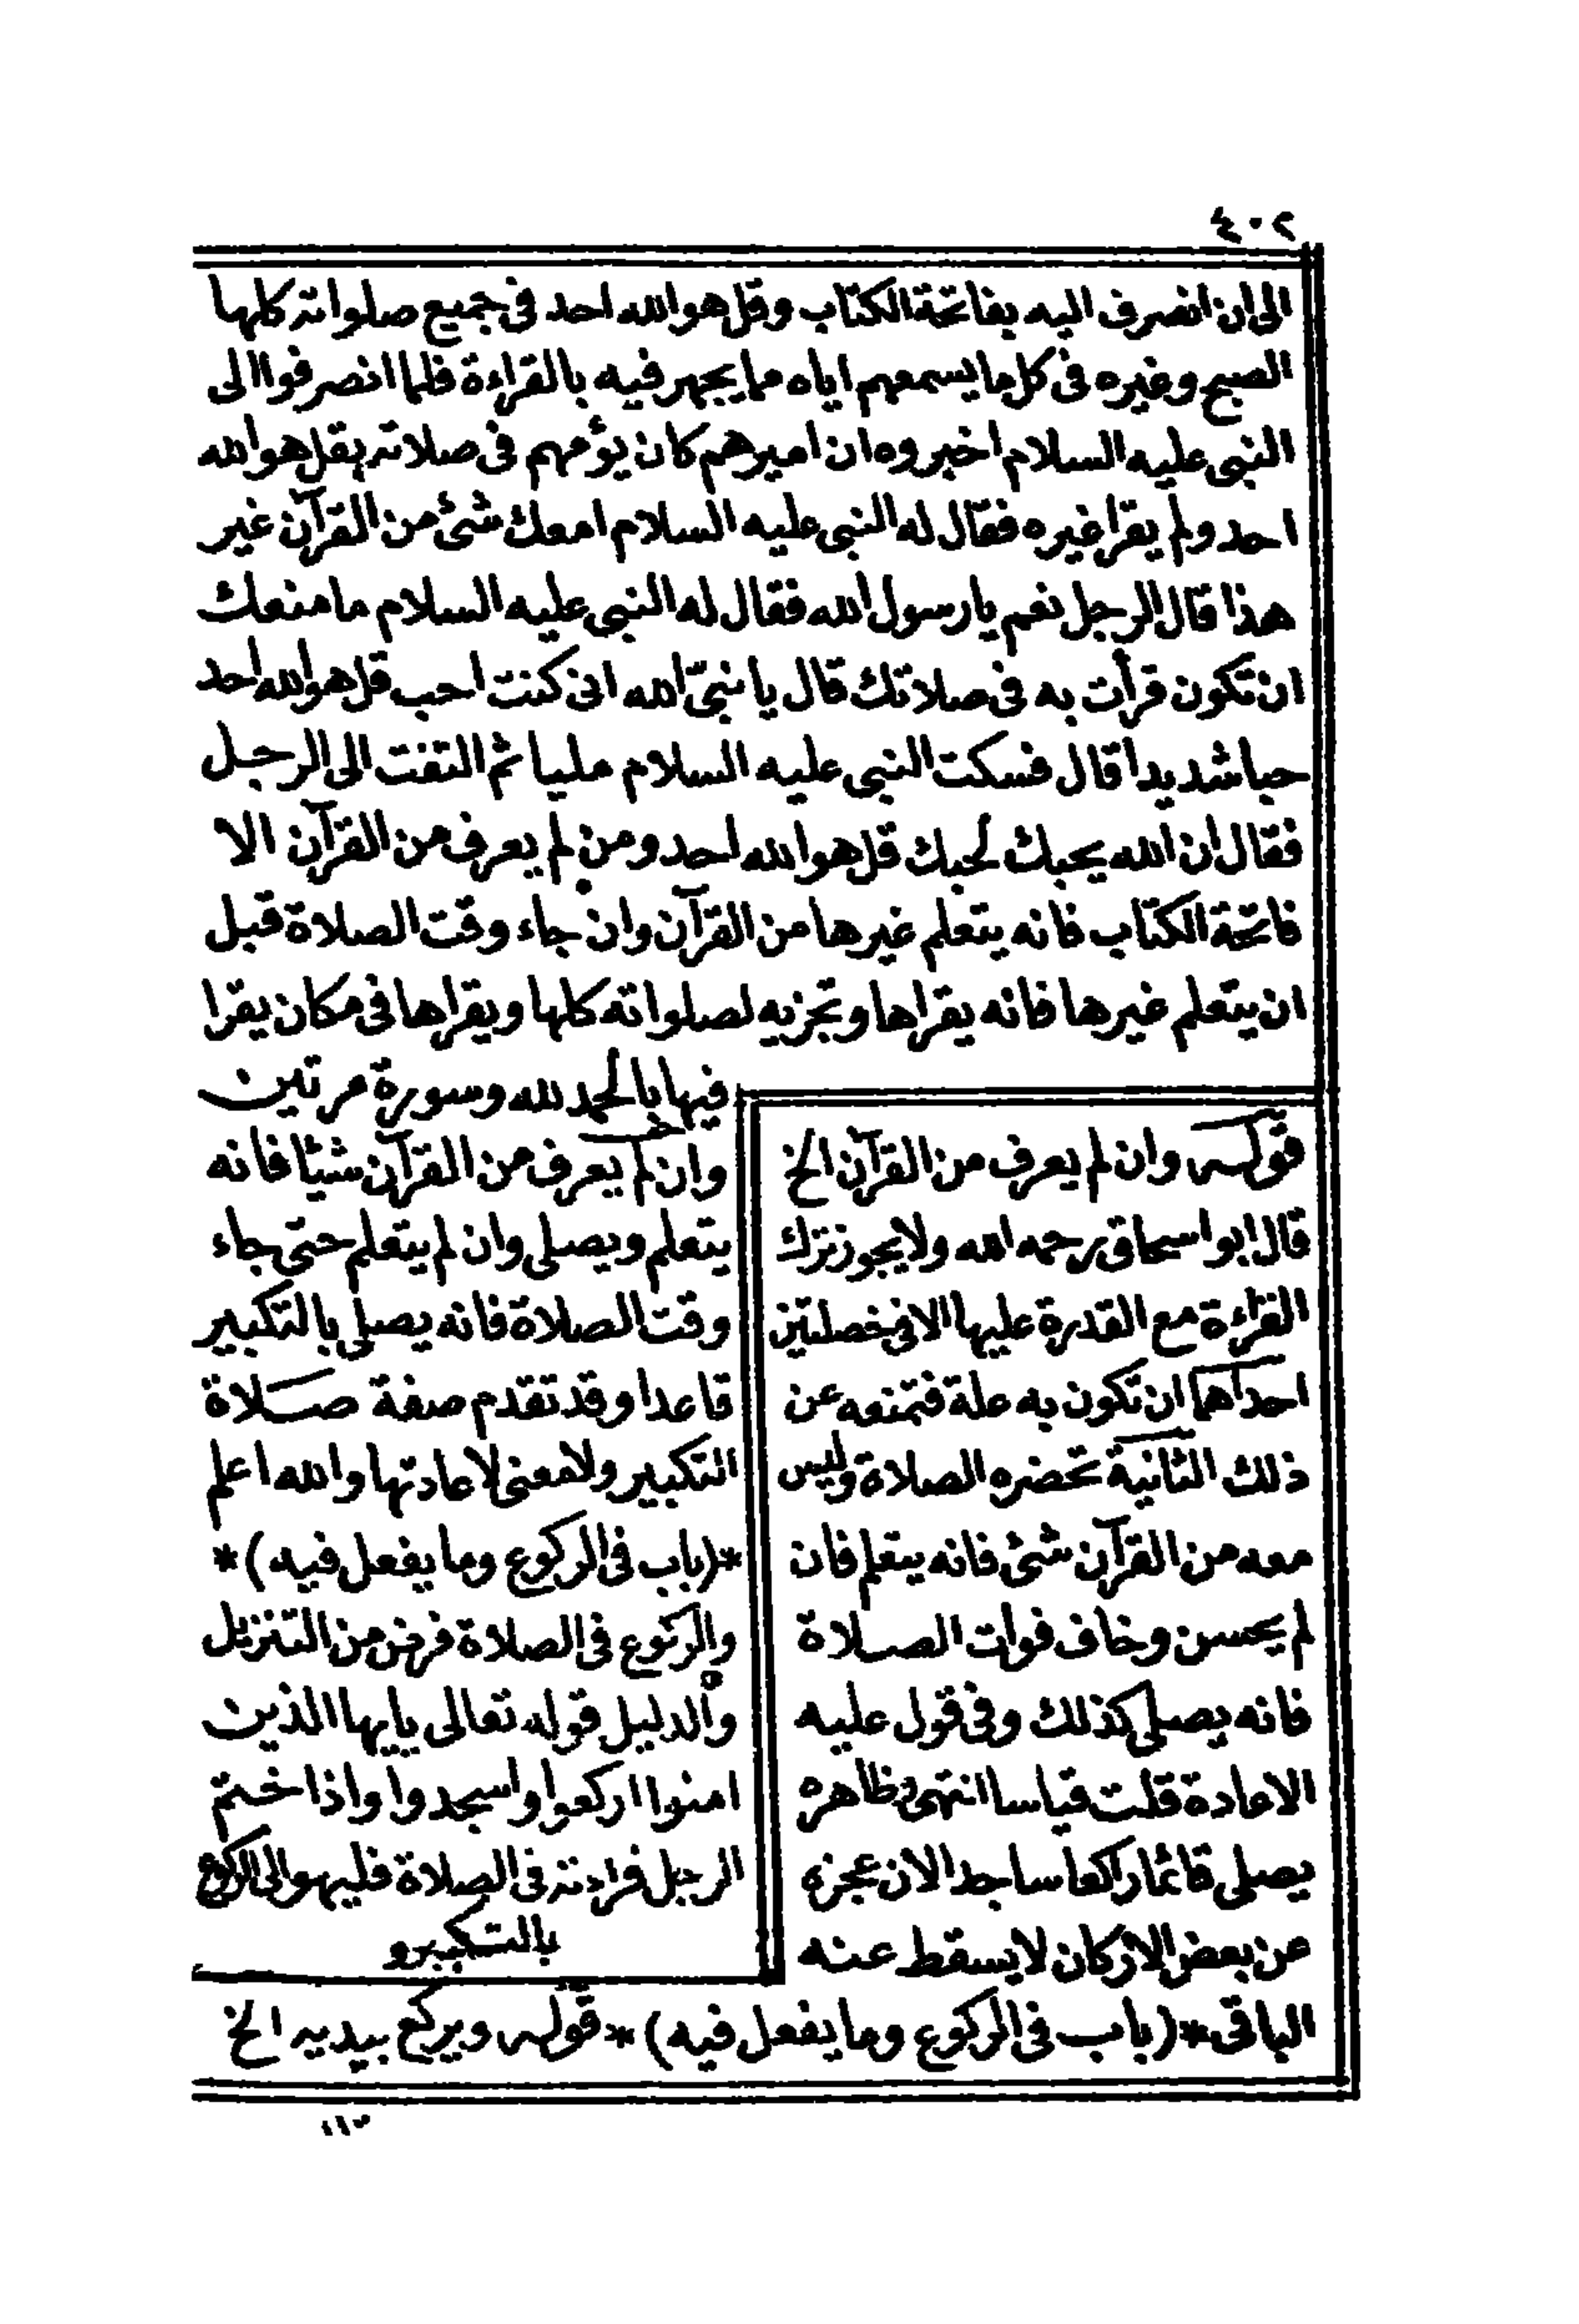 ٤٠٢
الى ان انصرف اليه بفاتحة الكتاب وقل هو الله احد فى جميع صلواته كلها
الصبح وغيره فى كل ما يسمعهم اياه مما يجهر فيه بالقراءة فلما انصرفوا الى
النبى عليه السلام اخبروه ان اميرهم كان يؤمهم فى صلاته بقل هو الله
احد ولم يقرا غيره فقال له النبى عليه السلام امعك شئ من القرآن غير
هذا قال الرجل نعم يا رسول الله فقال له النبى عليه السلام ما منعك
ان تكون قرأت به فى صلاتك قال يا نبىّ الله انى كنت احب قل هو الله احد
حبا شديدا قال فسكت النبى عليه السلام مليا ثم التفت الى الرجل
فقال ان الله يحبك لحبك قل هو الله احد ومن لم يعرف من القرآن الا
فاتحة الكتاب فانه يتعلم غيرها من القرآن وان جاء وقت الصلاة قبل
ان يتعلم غيرها فانه يقراها وتجزيه لصلواته كلها ويقراها فى مكان يقرا
فيها بالحمد لله وسورة مرتين
وان لم يعرف من القرآن شيئا فانه
يتعلم ويصلى وان لم يتعلم حتى جاء
وقت الصلاة فانه يصلى بالتكبير
قاعدا وقد تقدم صفة صلاة
التكبير ولا معنى لاعادتها والله اعلم
*(باب فى الركوع وما يفعل فيه)*
والركوع فى الصلاة فرض من التنزيل
والدليل قوله تعالى يايها الذين
امنوا اركعوا واسجدوا واذا ختم
الرجل قراءته فى الصلاة فليهو الى الركوع
بالتكبير و
قوله وان لم يعرف من القرآن الخ
قال ابو اسحاق رحمه الله ولا يجوز ترك
القراءة مع القدرة عليها الا فى خصلتين
احداهما ان تكون به علة فتمنعه عن
ذلك الثانية تحضره الصلاة وليس
معه من القرآن شئ فانه يتعلم فان
لم يحسن وخاف فوات الصلاة
فانه يصلى كذلك وفى قول عليه
الاعادة قلت قياسا انتهى وظاهره
يصلى قائما راكعا ساجدا لان عجزه
عن بعض الاركان لا يسقط عنه
الباقى *(باب فى الركوع وما يفعل فيه)* قوله ويركع بيديه الخ